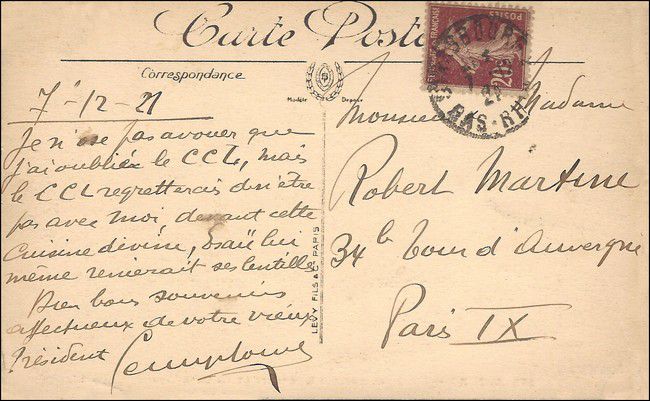 Carte Postale
Correspondance
Modèle Déposé
7-12-21
Je n'ose pas avouer que
j'ai oublié le CCL, mais
le CCL regretterais de n'être
pas avec moi, devant cette
cuisine divine, Esaü lui
même renierait ses lentilles
Bien bons souvenirs
affectueux de votre vieux
Président
LEVY FILS & Cie PARIS
Monsieur Madame
Robert Martine
34 b Tour d'Auvergne
Paris IX
POSTES
20c
BAS-RHIN